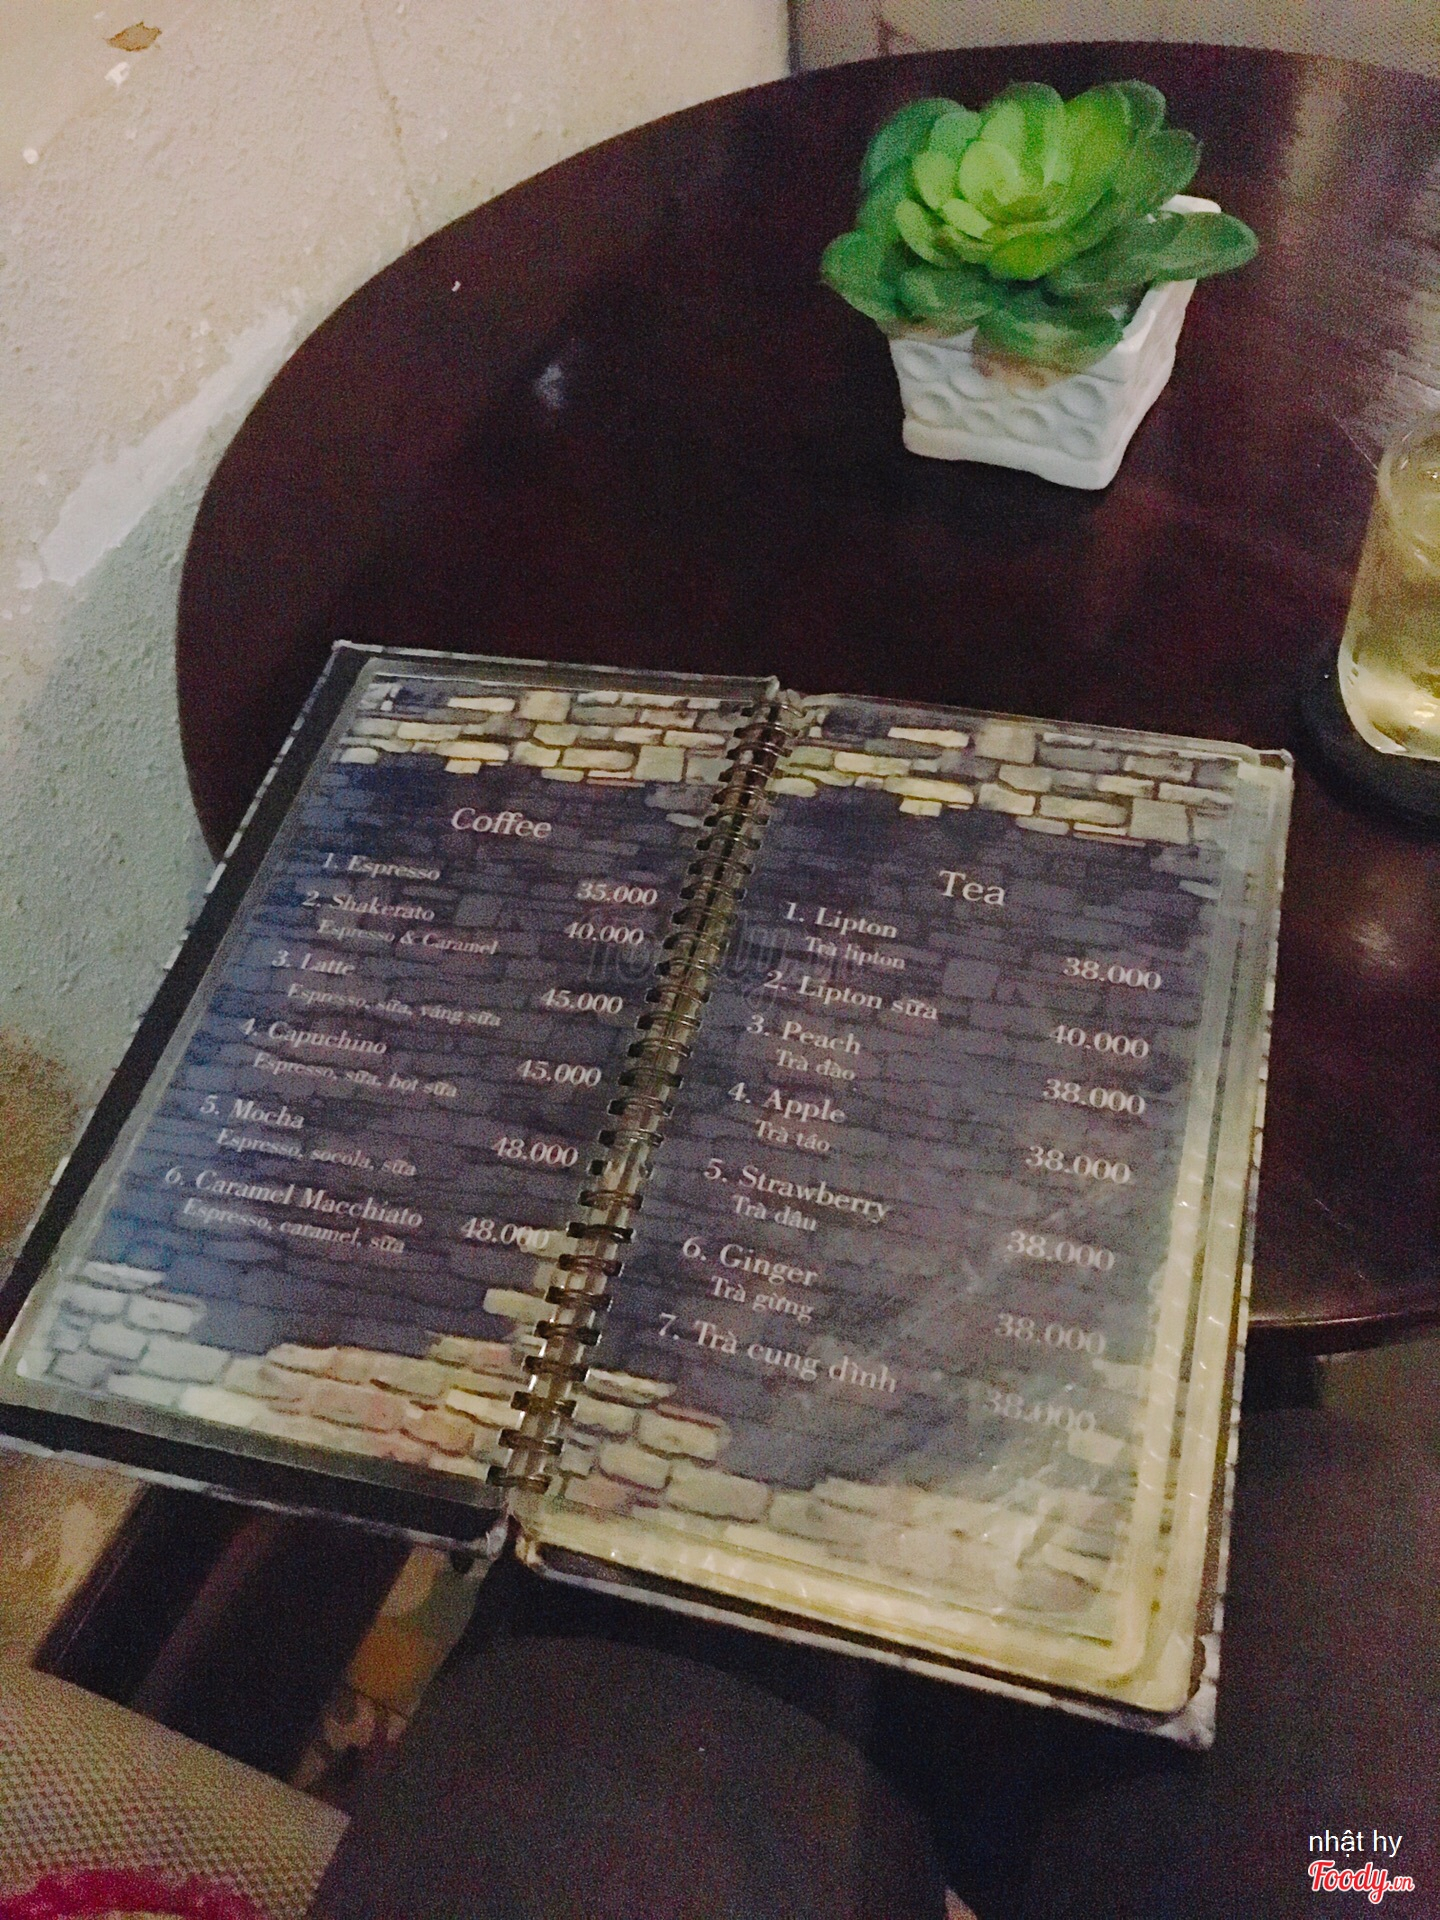 Coffee
1. Espresso 35.000
2. Shakerato 40.000
Espresso & Caramel
3. Latte 45.000
Espresso, sữa, váng sữa
4. Capuchino 45.000
Espresso, sữa, bọt sữa
5. Mocha 48.000
Espresso, socola, sữa
6. Caramel Macchiato 48.000
Espresso, caramel, sữa
Tea
1. Lipton 38.000
Trà lipton
2. Lipton sữa 40.000
3. Peach 38.000
Trà đào
4. Apple 38.000
Trà táo
5. Strawberry 38.000
Trà dâu
6. Ginger 38.000
Trà gừng
7. Trà cung đình 38.000
Foody.vn
nhật hy
Foody.vn